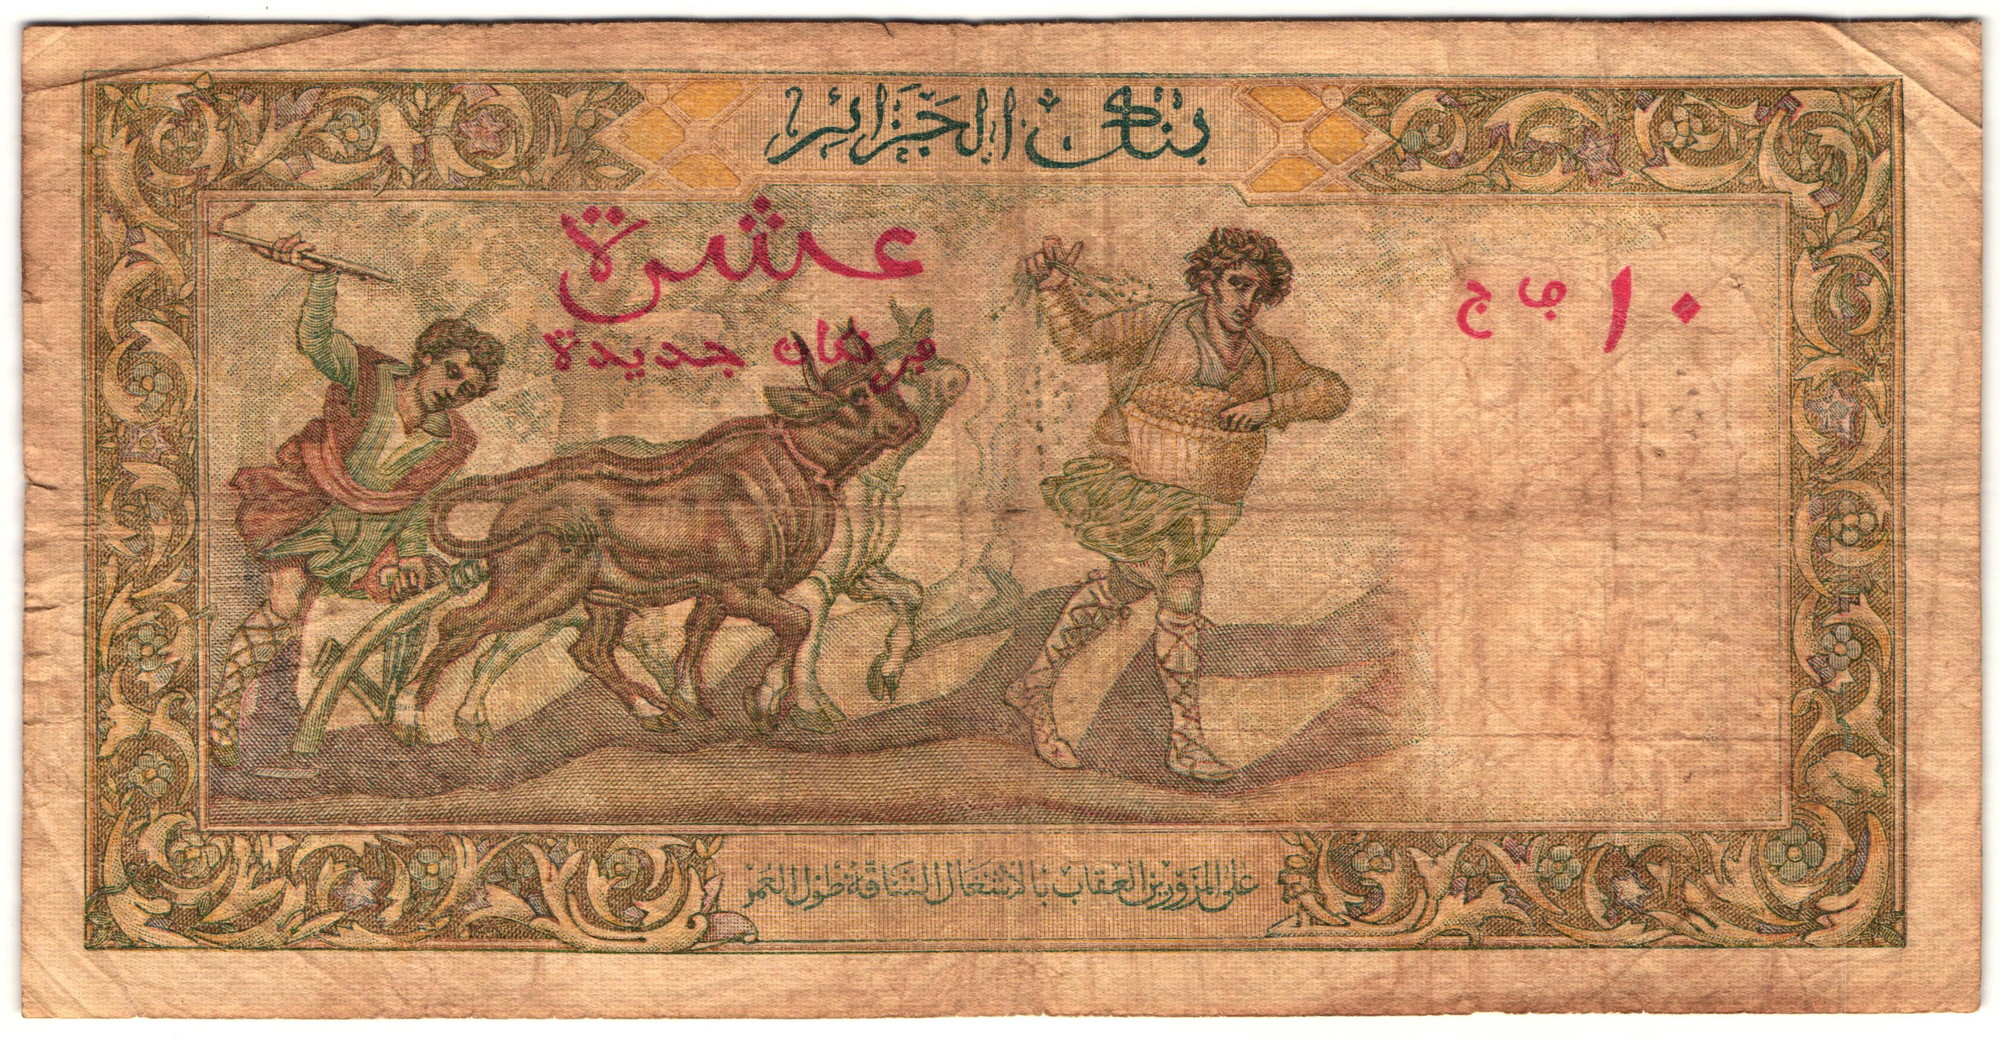 بنك الجزائر
عشرة
فرنكات جديدة
١٠ ف ج
على المزورين العقاب بالاشغال الشاقة طول العمر